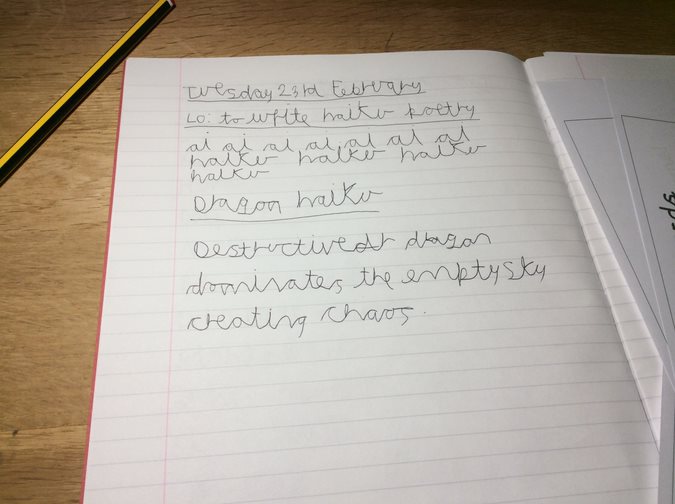 Tuesday 23rd February
LO: to write haiku poetry
ai ai ai ai ai ai ai
haiku haiku haiku
haiku
Dragon haiku
Destructive dragon
dominates the empty sky
creating chaos.